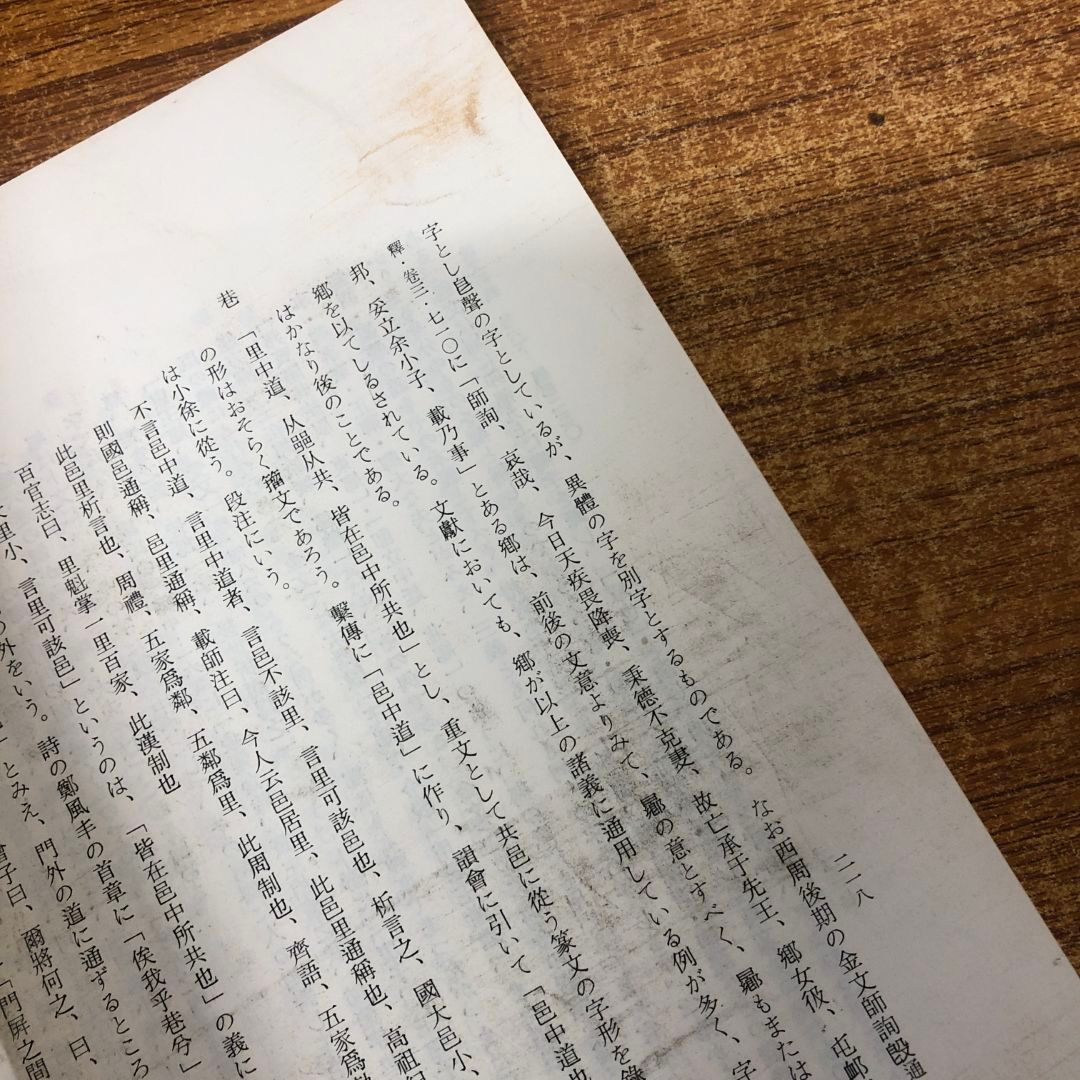 二一八
字とし自聲の字としているが、異體の字を別字とするものである。なお西周後期の金文師詢𣪘通
釋・卷三・七一〇に「師詢、哀哉、今日天疾畏降喪、秉德不克妻、故亡承于先王、鄕女彶、屯卹
邦、妥立余小子、載乃事」とある鄕は、前後の文意よりみて、嚮の意とすべく、嚮もまたは
鄕を以てしるされている。文獻においても、鄕が以上の諸義に通用している例が多く、字
はかなり後のことである。
巷
「里中道、从𨛜从共、皆在邑中所共也」とし、重文として共邑に從う篆文の字形を錄
の形はおそらく籒文であろう。繫傳に「邑中道」に作り、韻會に引いて「邑中道也
は小徐に從う。段注にいう。
不言邑中道、言里中道者、言邑不該里、言里可該邑也、析言之、國大邑小、
則國邑通稱、邑里通稱、載師注曰、今人云邑居里、此邑里通稱也、高祖
此邑里析言也、周禮、五家爲鄰、五鄰爲里、此周制也、齊語、五家爲
百官志曰、里魁掌一里百家、此漢制也
里小、言里可該邑」というのは、「皆在邑中所共也」の義に
の外をいう。詩の鄭風丰の首章に「俟我乎巷兮」
とみえ、門外の道に通ずるところ
曾子曰、爾將何之、曰、
「門屛之間